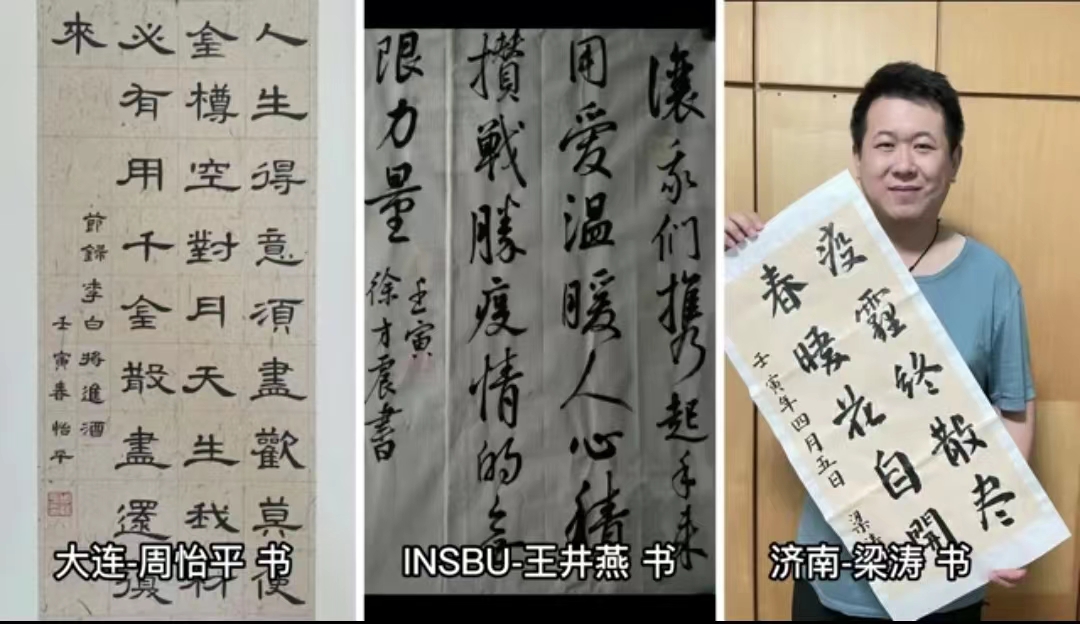 人生得意須盡歡莫使
金樽空對月天生我材
必有用千金散盡還復
來
節録李白将進酒
壬寅春怡平
大连-周怡平 书
讓我们携起手来
用愛温暖人心積
攢戰勝疫情的无
限力量
壬寅
徐才震書
INSBU-王井燕 书
疫霾终散尽
春暖花自開
壬寅年四月五日
梁
济南-梁涛 书